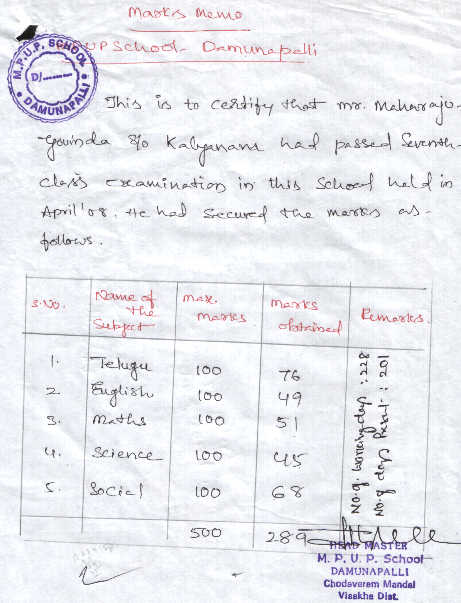 Marks Memo
M.P.U.P. SCHOOL
D/
DAMUNAPALLI
UP School Damunapalli
This is to certify that mr. Maharaju-
Govinda S/o Kalyanam had passed Seventh-
class examination in this School held in
April'08. He had secured the marks as-
follows.
S.No. Name of the Subject max. marks marks obtained Remarks.
1. Telugu 100 76
2. English 100 49
3. Maths 100 51
4. Science 100 45
5. Social 100 68
500 289
No.of. working days : 228
No.of days Present : 201
HEAD MASTER
M. P. U. P. School
DAMUNAPALLI
Chodavaram Mandal
Visakha Dist.